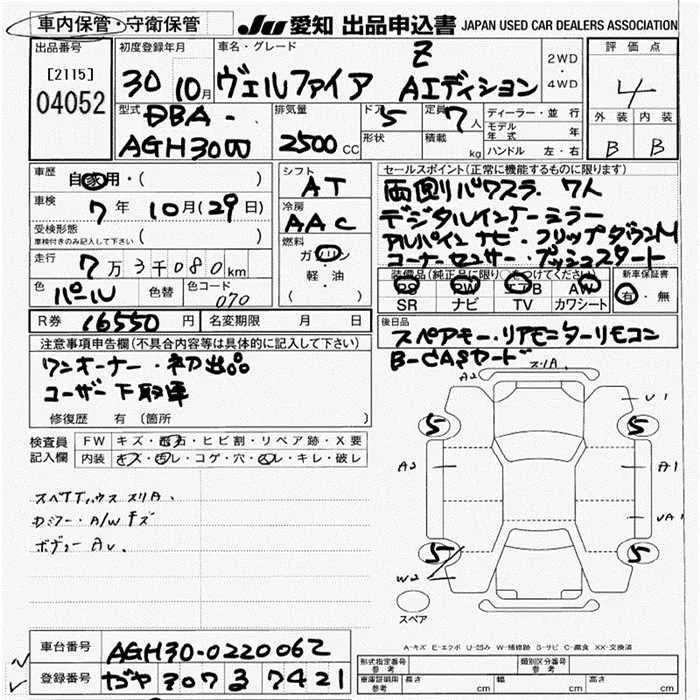 車内保管・守衛保管
JU 愛知 出品申込書 JAPAN USED CAR DEALERS ASSOCIATION
出品番号
[2115]
04052
初度登録年月
30 10月
車名・グレード
Z
ヴェルファイア Aエディション
2WD
・
4WD
評価点
4
外装 内装
B B
型式
DBA-
AGH30W
排気量
2500 CC
ドア 5
形状
定員 7人
積載 kg
ディーラー・並行
モデル年式 年
ハンドル 左・右
車歴
自家用・( )
車検
7年 10月(29日)
受検形態
車検付きのみ記入して下さい ( )
走行
7万3千080km
色 パール
色替
色コード 070
シフト
AT
冷房
AAC
燃料
ガソリン
軽・油
( )
セールスポイント(正常に機能するものに限ります)
両側パワスラ. 7人
デジタルインナーミラー
アルパインナビ・フリップダウンM
コーナーセンサー・プッシュスタート
装備品(純正品に限り○をつけてください)
PS PW エアB AW
SR ナビ TV カワシート
新車保証書
有・無
R券 16550円
名変期限 月 日
後日品
スペアキー・リアモニターリモコン
B-CASカード
注意事項申告欄(不具合内容等は具体的に記入して下さい)
ワンオーナー・初出品
ユーザー下取車
修復歴 有 (箇所 )
検査員
記入欄
FW キズ・飛石・ヒビ割・リペア跡・X要
内装 キズ・汚レ・コゲ・穴・スレ・キレ・破レ
スリA.
Dミラー・A/Wキズ
ボディーAU.
A2 スリA.
U1
5 5
A2 A1
UA1
5 5
W2
スペア
A-キズ E-エクボ U-凹み W-補修跡 S-サビ C-腐食 XX-交換済
車台番号 AGH30-0220062
登録番号 307 7421
形式指定番号
参考
類別区分番号
参考
車庫証明用
参考
長さ cm 幅 cm 高さ cm